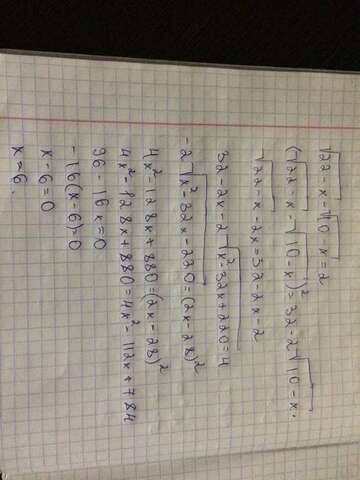 √22-x-√10-x=2
(√22-x-√10-x)²=32-2√10-x.
√22-x-2x=32-2x-2
32-2x-2√x²-32x+220=4
-2√x²-32x-220=(2x-28)²
4x²-128x+880=(2x-28)²
4x²-128x+880=4x²-112x+784
96-16x=0
-16(x-6)=0
x-6=0
x=6.